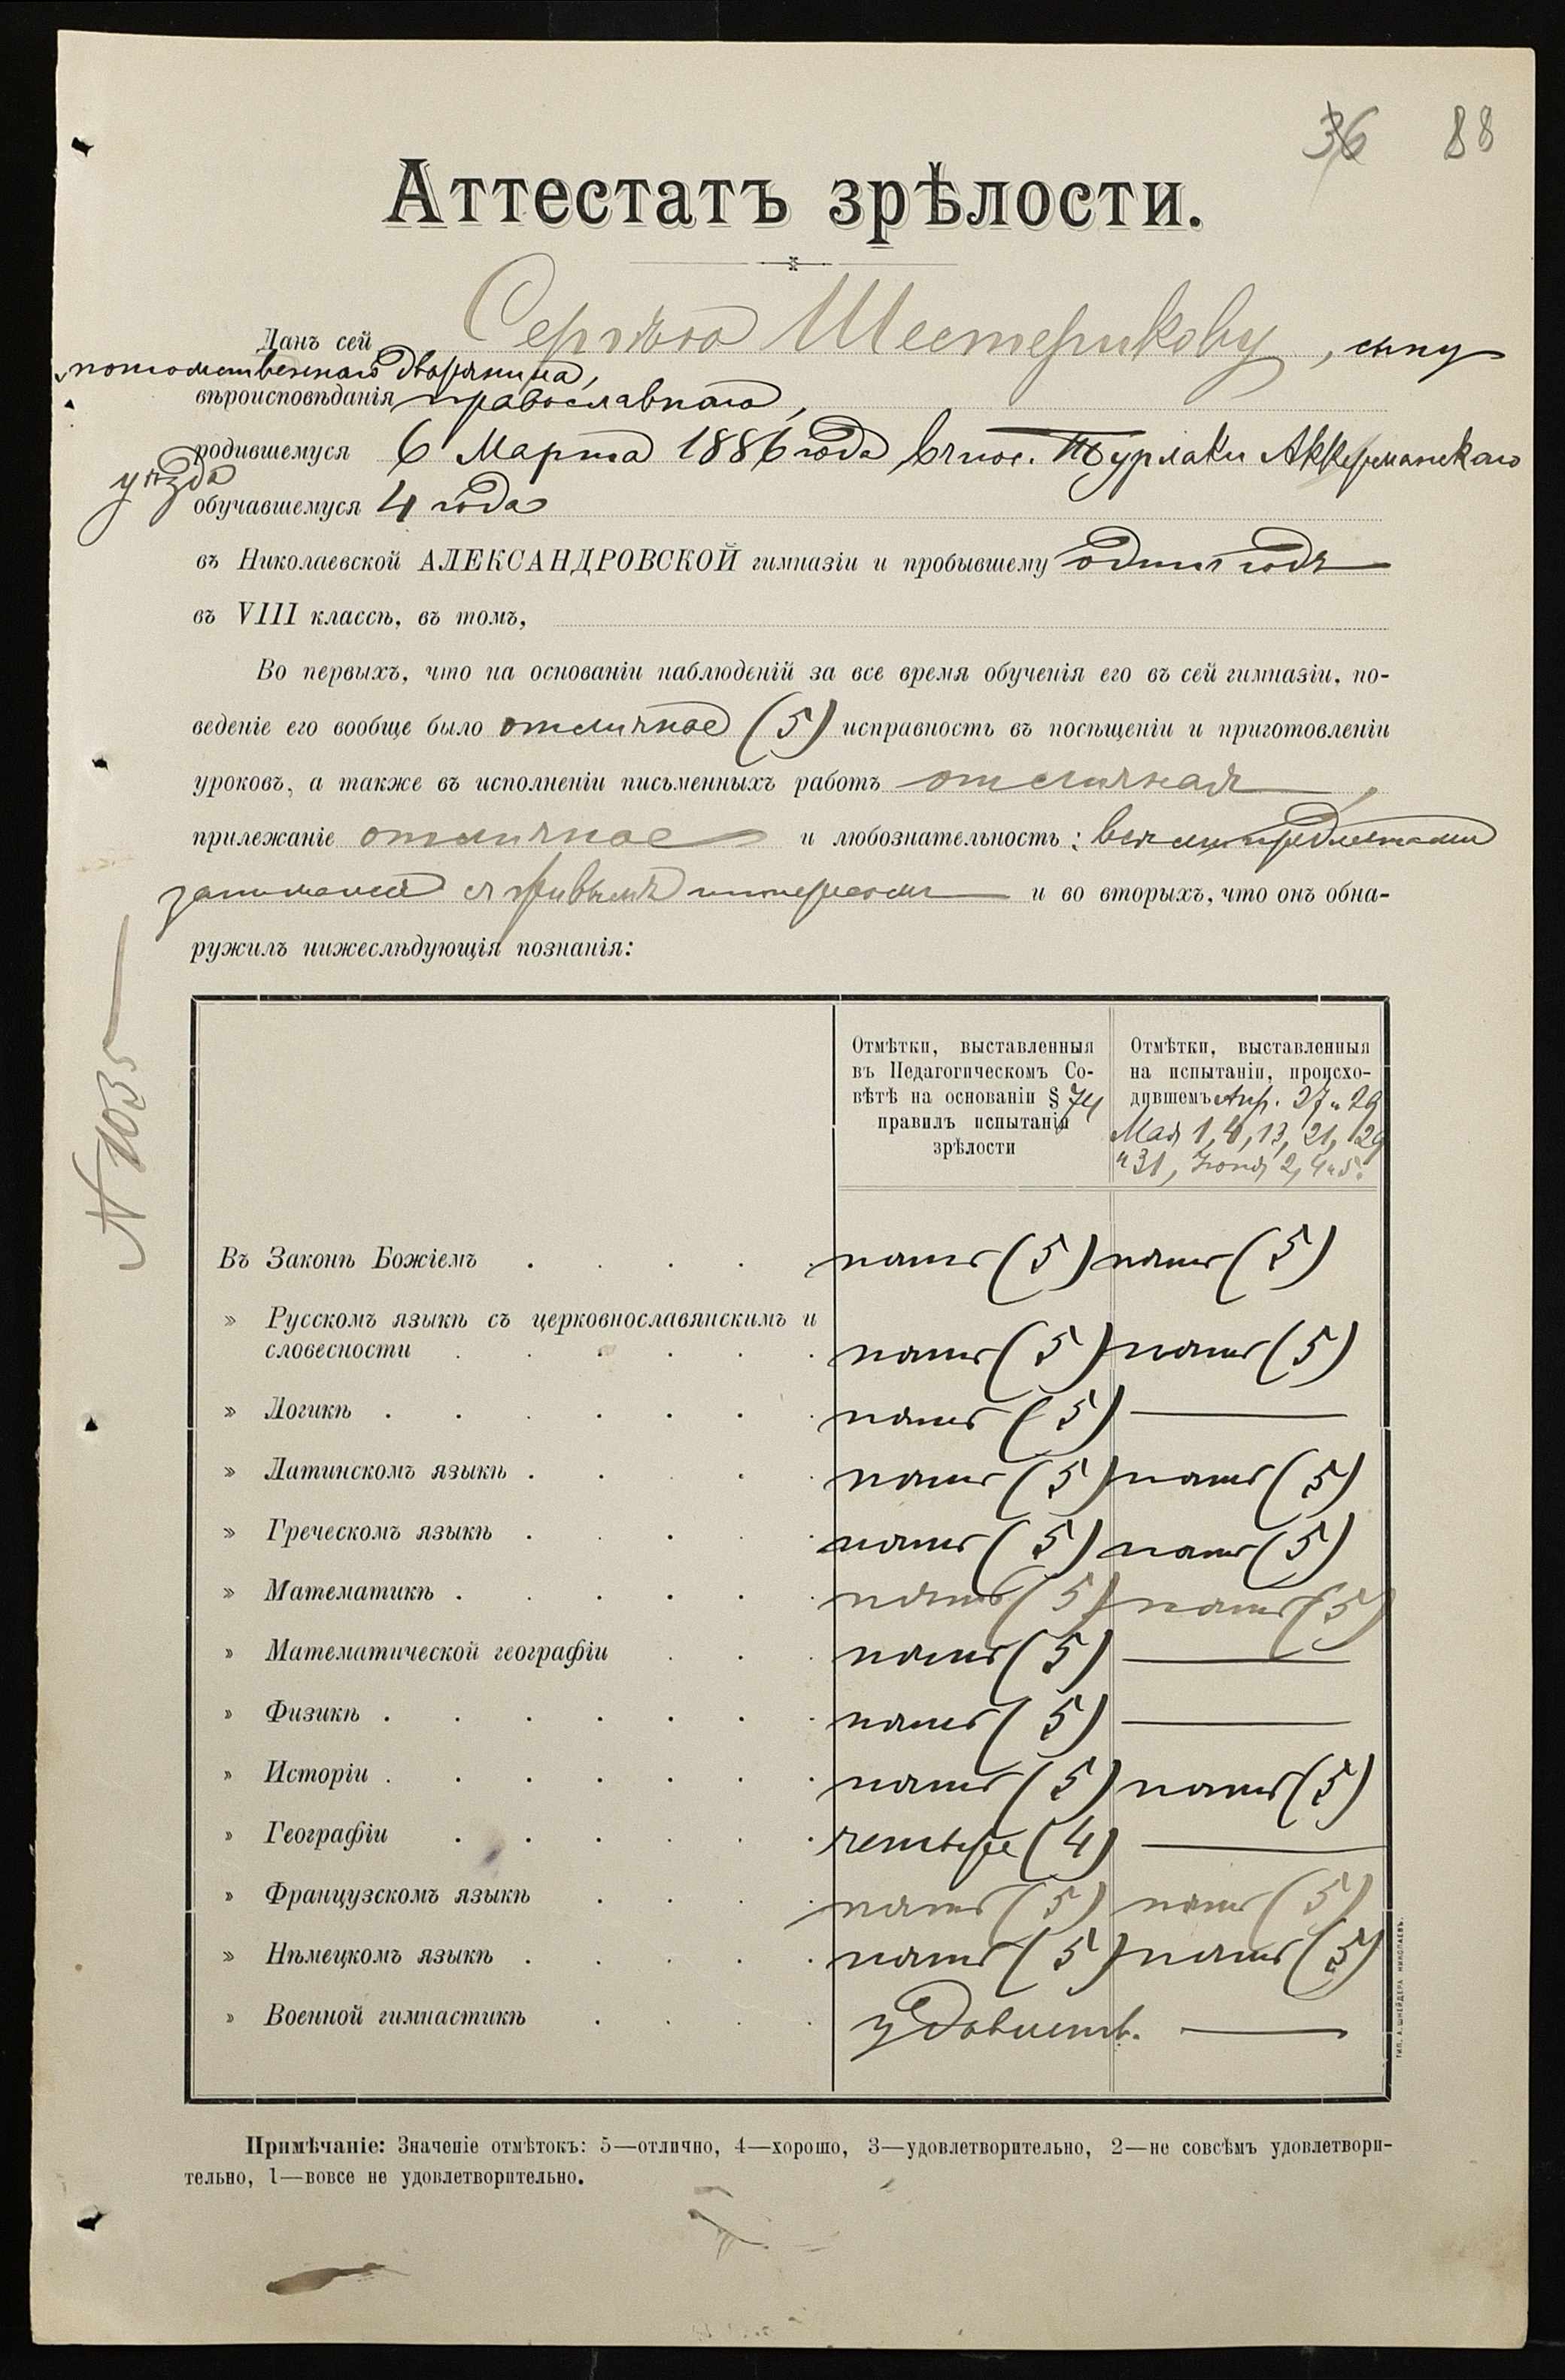 36 88
Аттестатъ зрѣлости.
Данъ сей Сергѣю Шестерикову, сыну
потомственнаго дворянина,
вѣроисповѣданія православнаго,
родившемуся 6 Марта 1886 года въ пос. Турлаки Аккерманскаго
уѣзда
обучавшемуся 4 года
въ Николаевской АЛЕКСАНДРОВСКОЙ гимназіи и пробывшему одинъ годъ
въ VIII классѣ, въ томъ,
Во первыхъ, что на основаніи наблюденій за все время обученія его въ сей гимназіи, по-
веденіе его вообще было отличное (5) исправность въ посѣщеніи и приготовленіи
уроковъ, а также въ исполненіи письменныхъ работъ отличная,
прилежаніе отличное и любознательность: всѣми предметами
занимался съ живымъ интересомъ и во вторыхъ, что онъ обна-
ружилъ нижеслѣдующія познанія:
N 1035
Отмѣтки, выставленныя
въ Педагогическомъ Со-
вѣтѣ на основаніи § 74
правилъ испытанія
зрѣлости
Отмѣтки, выставленныя
на испытаніи, происхо-
дившемъ Апр. 27 и 29
Мая 1, 4, 13, 21, 29
и 31, Іюня 2, 4 и 5.
Въ Законѣ Божіемъ . . . . . пять (5) пять (5)
» Русскомъ языкѣ съ церковнославянскимъ и
словесности . . . . . . пять (5) пять (5)
» Логикѣ . . . . . . . пять (5) —
» Латинскомъ языкѣ . . . . . пять (5) пять (5)
» Греческомъ языкѣ . . . . . пять (5) пять (5)
» Математикѣ . . . . . . пять (5) пять (5)
» Математической географіи . . . пять (5) —
» Физикѣ . . . . . . . пять (5) —
» Исторіи . . . . . . . пять (5) пять (5)
» Географіи . . . . . . четыре (4) —
» Французскомъ языкѣ . . . . пять (5) пять (5)
» Нѣмецкомъ языкѣ . . . . . пять (5) пять (5)
» Военной гимнастикѣ . . . . удовлетв. —
ТИП. А. ШНЕЙДЕРА НИКОЛАЕВЪ.
Примѣчаніе: Значеніе отмѣтокъ: 5—отлично, 4—хорошо, 3—удовлетворительно, 2—не совсѣмъ удовлетвори-
тельно, 1—вовсе не удовлетворительно.